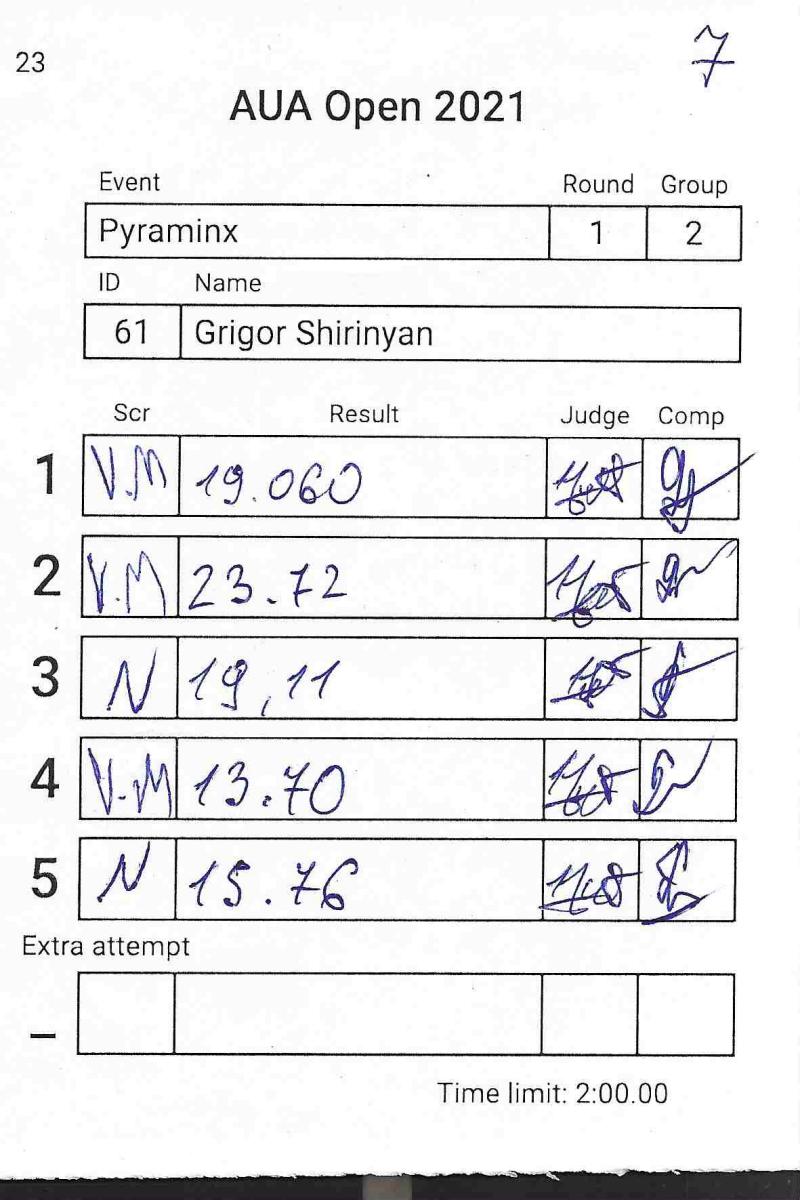 23
7
AUA Open 2021
Event Round Group
Pyraminx 1 2
ID Name
61 Grigor Shirinyan
Scr Result Judge Comp
1 V.M 19.060
2 V.M 23.72
3 N 19,11
4 V.M 13.70
5 N 15.76
Extra attempt
–
Time limit: 2:00.00